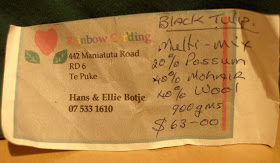 Rainbow
442 Maniatutu Road
RD 6
Te Puke
Hans & Ellie Botje
07 533 1610
Black Tulip.
Multi-mix
20% Possum
40% Mohair
40% Wool
900gms
$63-00